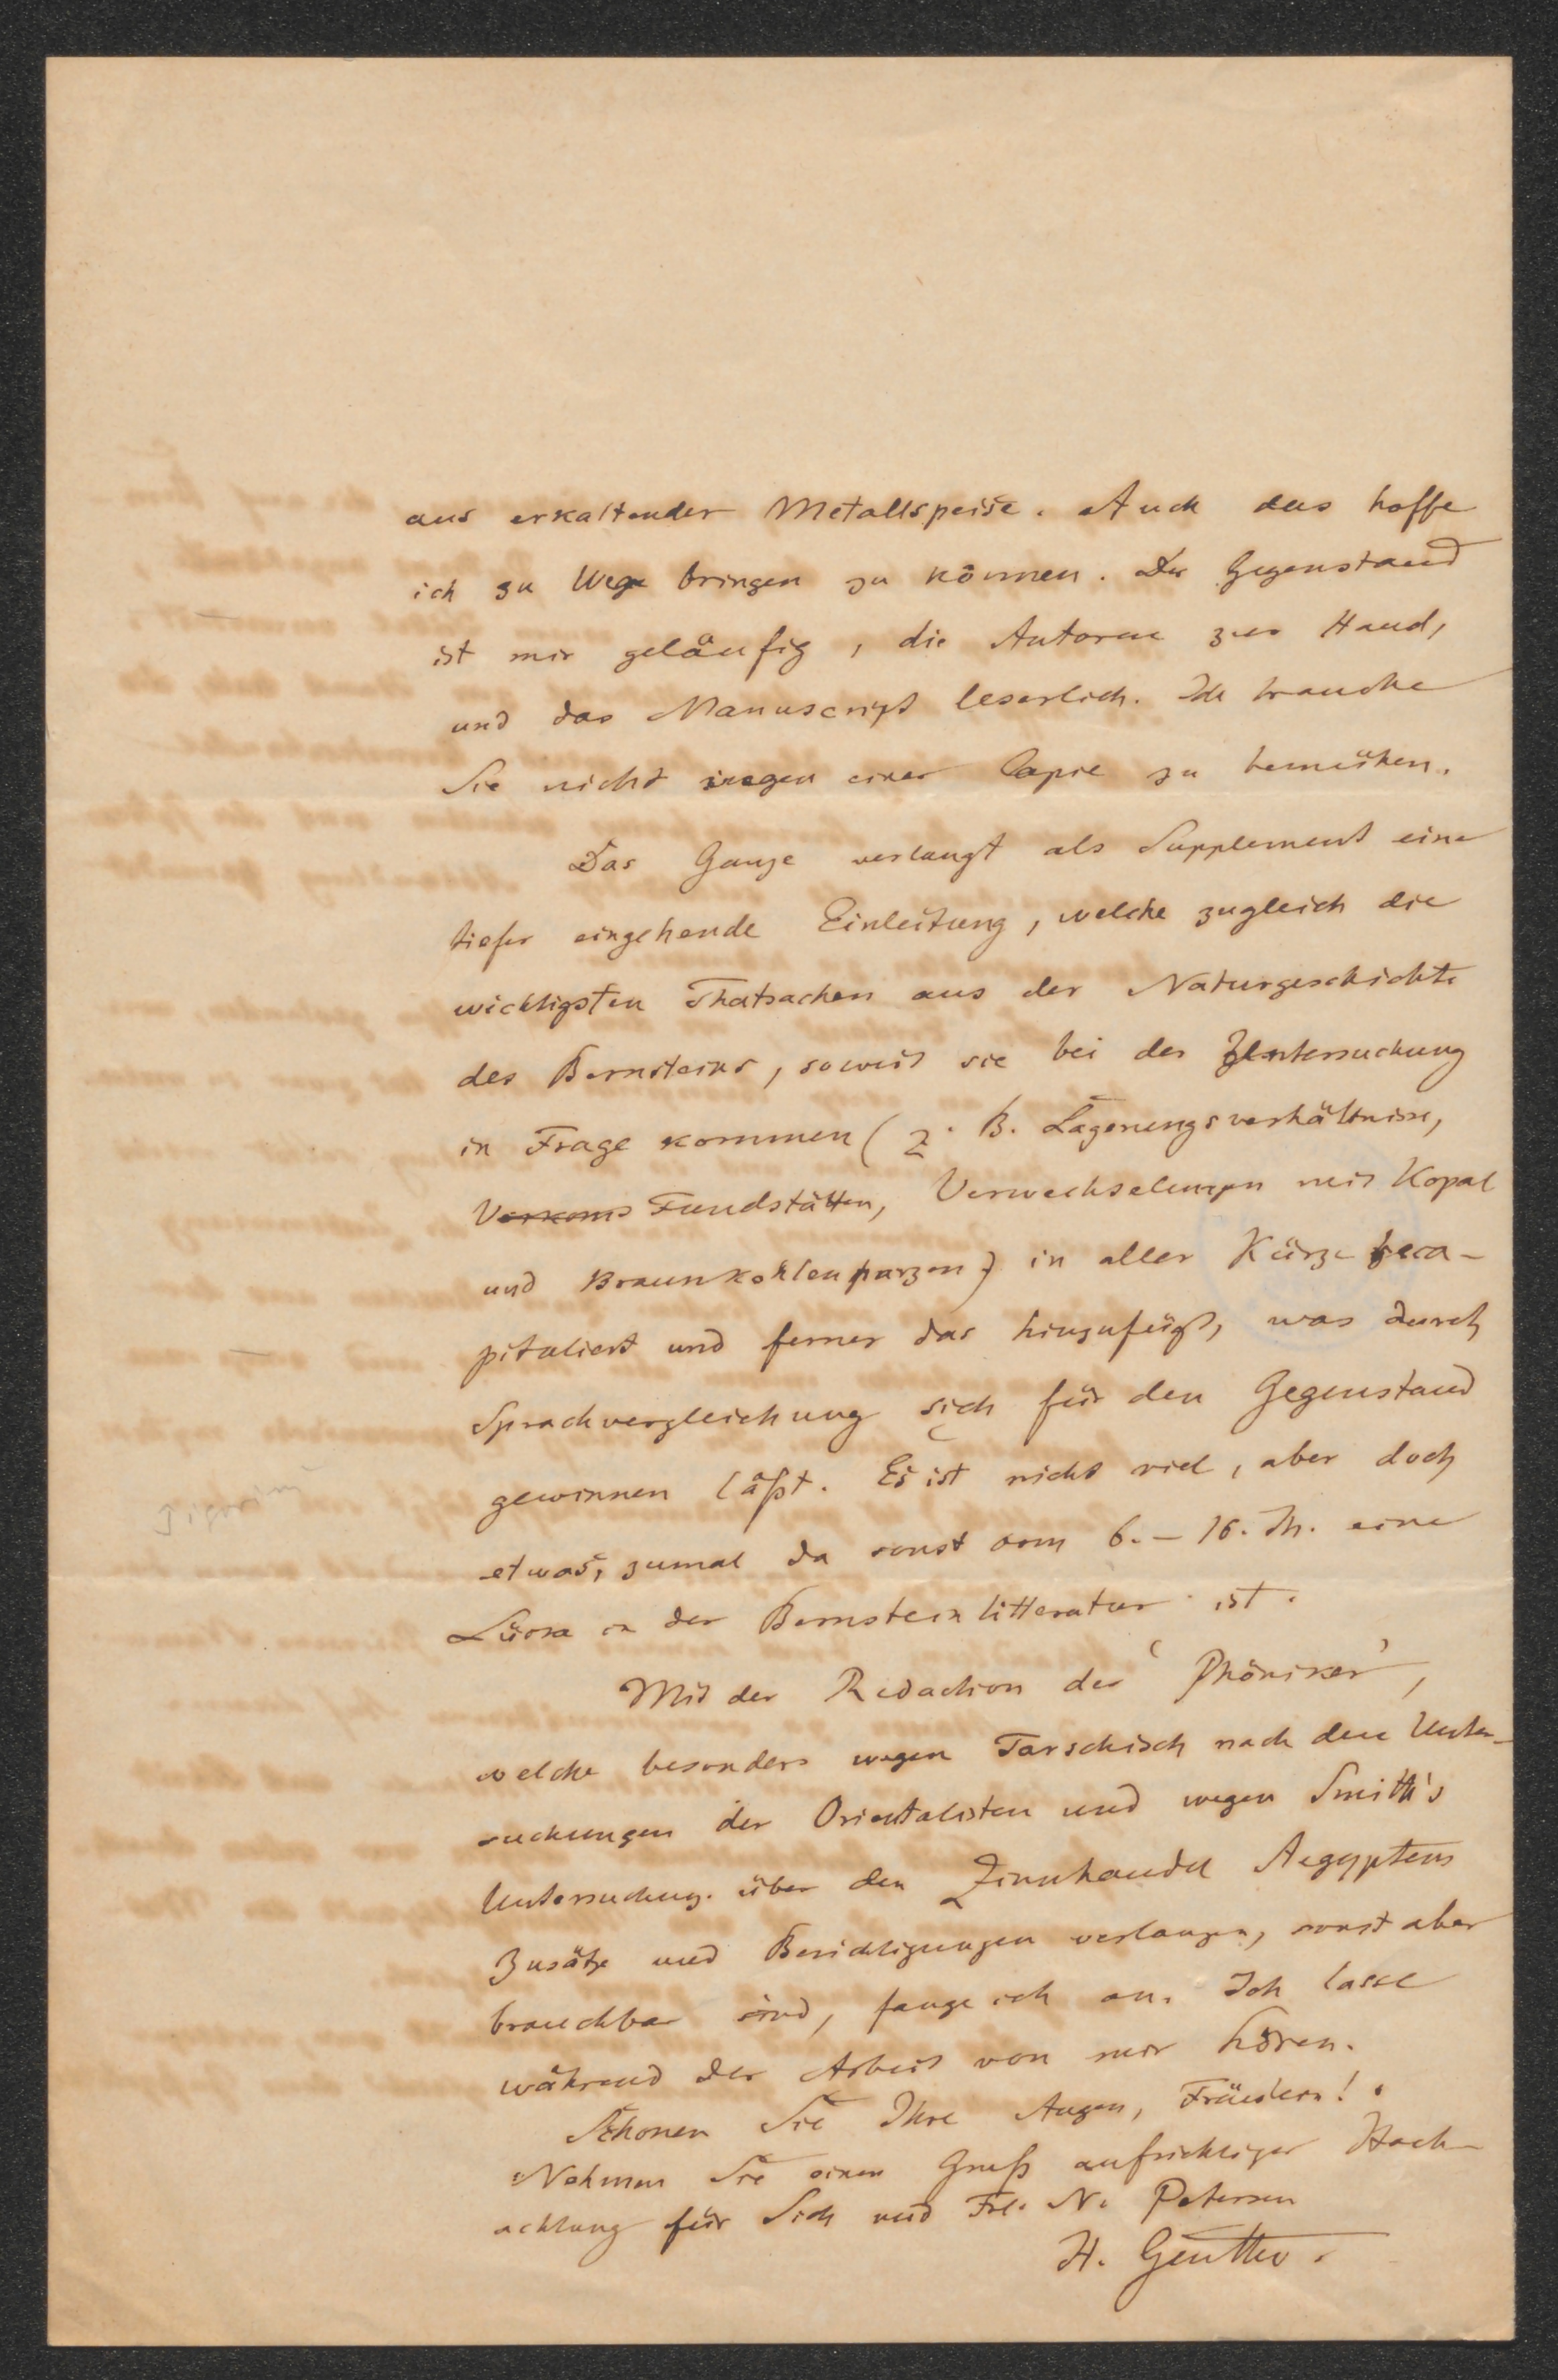 aus erkaltender Metallspeise. Auch das hoffe
ich zu Wege bringen zu können. Der Gegenstand
ist mir geläufig, die Autoren zur Hand,
und das Manuscript leserlich. Ich brauche
Sie nicht wegen einer Copie zu bemühen.
Das Ganze verlangt als Supplement eine
tiefer eingehende Einleitung, welche zugleich die
wichtigsten Thatsachen aus der Naturgeschichte
des Bernsteins, soweit sie bei der Untersuchung
in Frage kommen (z. B. Lagerungsverhältnisse,
Vorkoms Fundstätten, Verwechselungen mit Kopal
und Braunkohlenharzen) in aller Kürze reca-
pituliert und ferner das hinzufügt, was durch
Sprachvergleichung sich für den Gegenstand
gewinnen läßt. Es ist nicht viel, aber doch
etwas, zumal da sonst vom 6. – 16. Jh. eine
in der Bernsteinlitteratur ist.
Mit der Redaction der 'Phöniker',
welche besonders wegen Tarschisch nach den Unter-
suchungen der Orientalisten und wegen Smith's
Untersuchug. über den Zinnhandel Aegyptens
Zusätze und Berichtigungen verlangen, sonst aber
brauchbar sind, fange ich an. Ich lasse
während der Arbeit von mir hören.
Schonen Sie Ihre Augen, Fräulein!
Nehmen Sie einen Gruß aufrichtiger Hoch-
achtung für Sich und Frl. N. Petersen
H. Genthe.